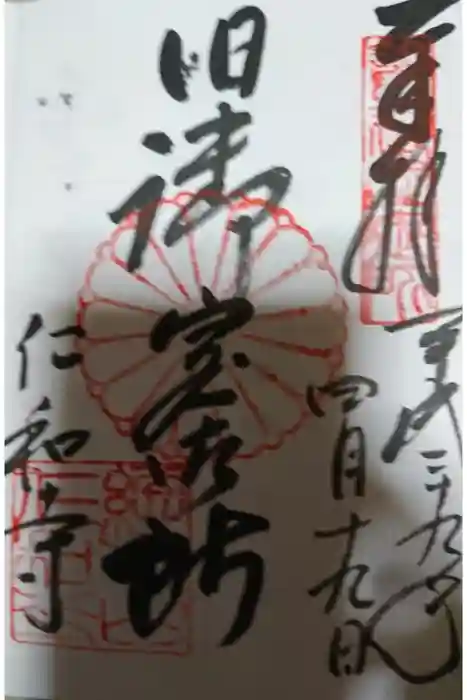 奉拝
平成二十九年
四月十九日
旧御室御所
仁和寺